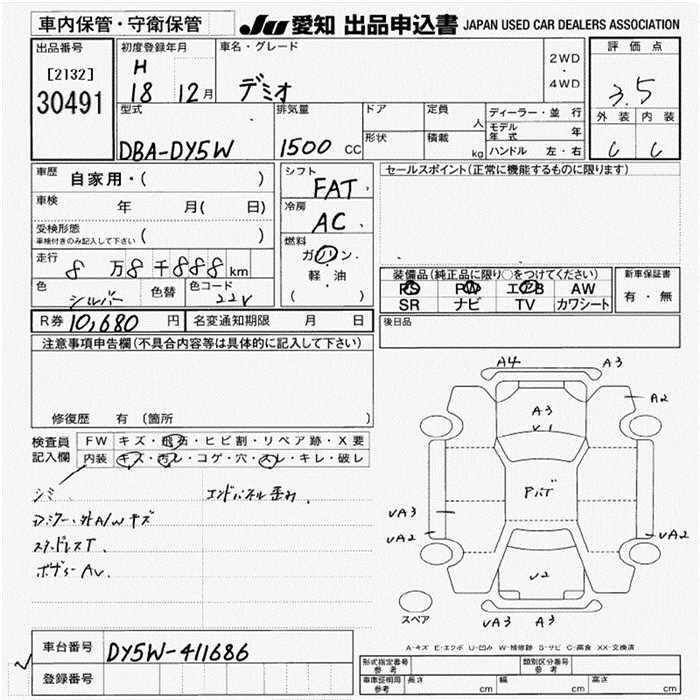 車内保管・守衛保管
JU 愛知 出品申込書 JAPAN USED CAR DEALERS ASSOCIATION
出品番号
[2132]
30491
初度登録年月
H
18 12月
車名・グレード
デミオ
2WD
・
4WD
評価点
3.5
外装 内装
C C
型式
DBA-DY5W
排気量
1500 CC
ドア
定員
人
形状
積載
kg
ディーラー・並行
モデル年式 年
ハンドル 左・右
車歴 自家用・( )
車検 年 月( 日)
受検形態
車検付きのみ記入して下さい ( )
走行 8 万 8 千 888 km
色 シルバー 色替 色コード 22V
シフト
FAT
冷房
AC
燃料
ガソリン・
軽・油
( )
セールスポイント(正常に機能するものに限ります)
装備品(純正品に限り○をつけてください)
PS PW エアB AW
SR ナビ TV カワシート
新車保証書
有・無
R券 10,680 円 名変通知期限 月 日
後日品
注意事項申告欄(不具合内容等は具体的に記入して下さい)
修復歴 有 (箇所 )
検査員
記入欄
FW キズ・飛石・ヒビ割・リペア跡・X要
内装 キズ・汚レ・コゲ・穴・スレ・キレ・破レ
シミ
エンドパネル歪み.
ドアミラー・外A/W キズ
スタッドレスT.
ボディーAv.
A4 A3
A2
A3
V1
アバタ
UA3
UA2
UA2
U2
UA3 A3
スペア
A-キズ E-エクボ U-凹み W-補修跡 S-サビ C-腐食 XX-交換済
車台番号 DY5W-411686
登録番号
形式指定番号 参考
類別区分番号 参考
車庫証明用 参考 長さ cm 幅 cm 高さ cm